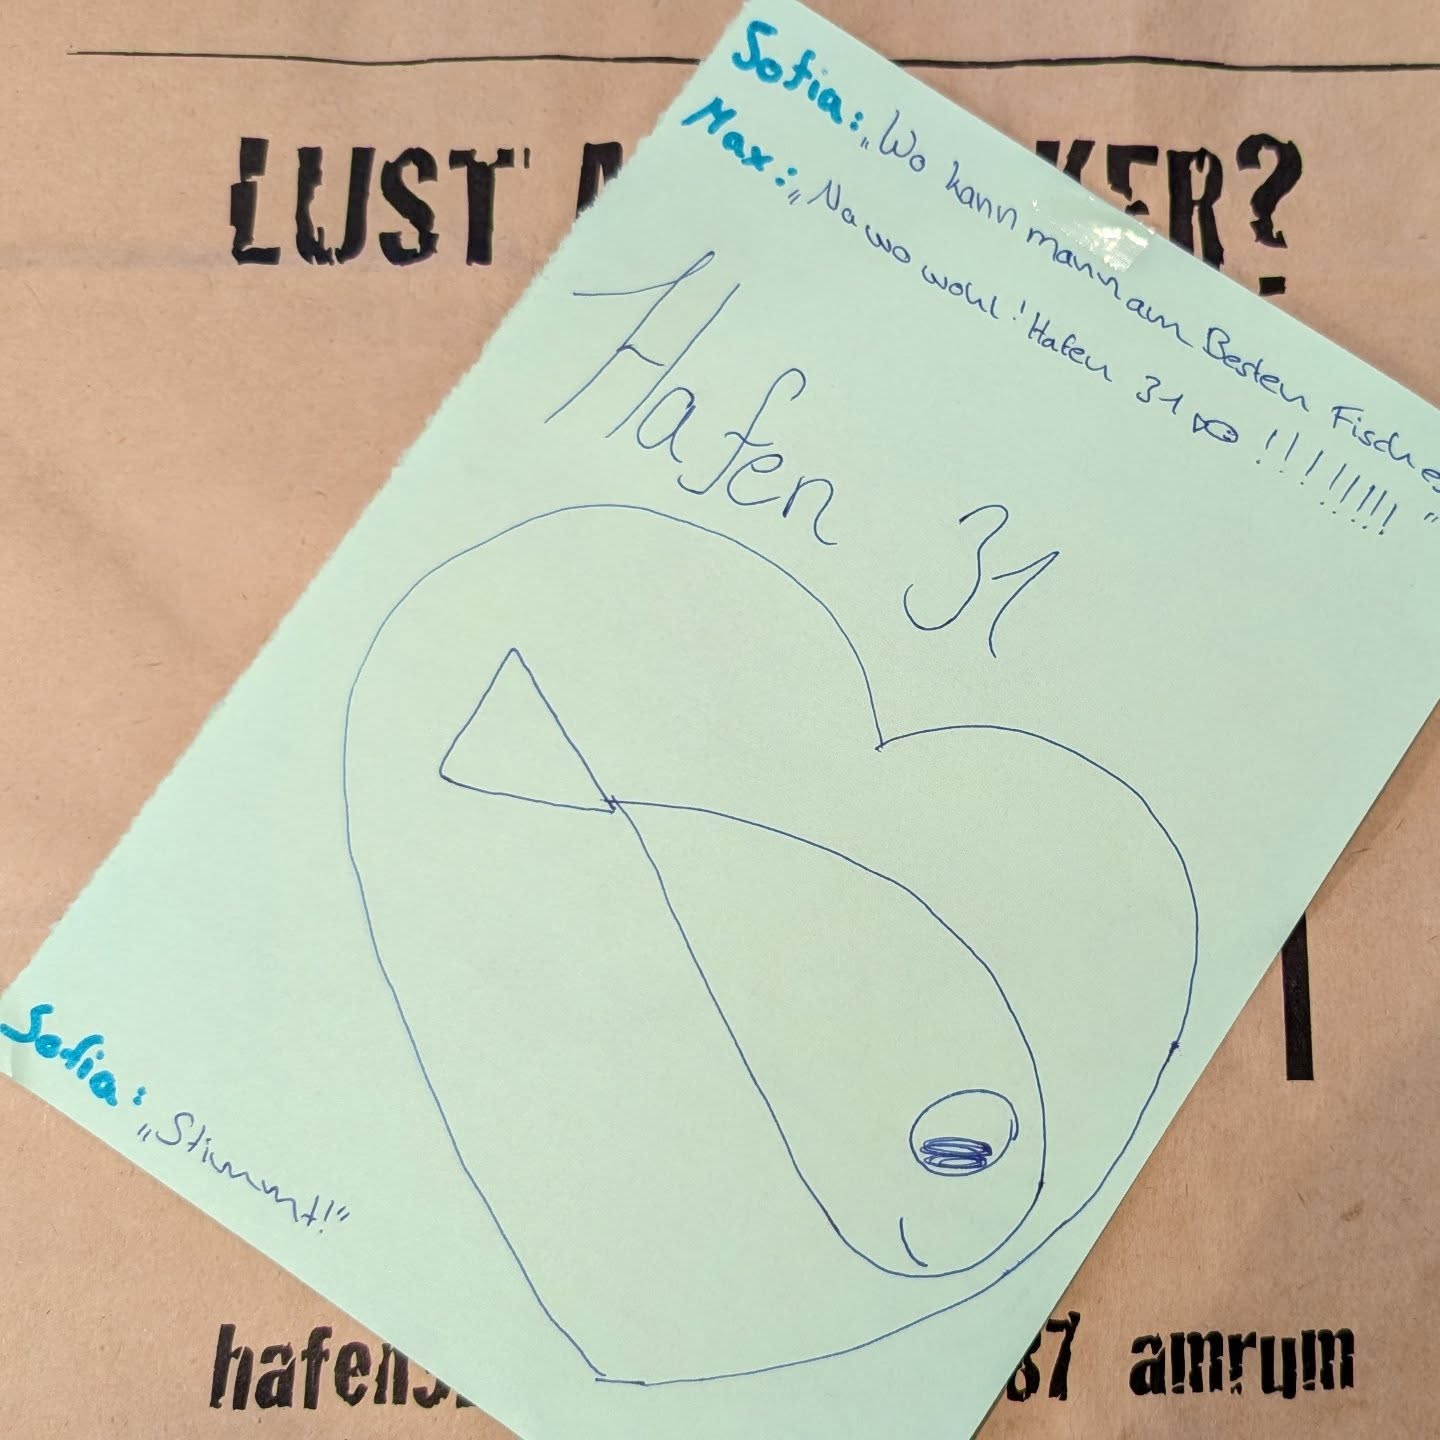 LUST
ER?
Sofia: „Wo kann mann am Besten Fisch es
Max: „Na wo wohl! Hafen 31 !!!!!!!!"
Hafen 31
Sofia: „Stimmt!"
hafen
37 amrum